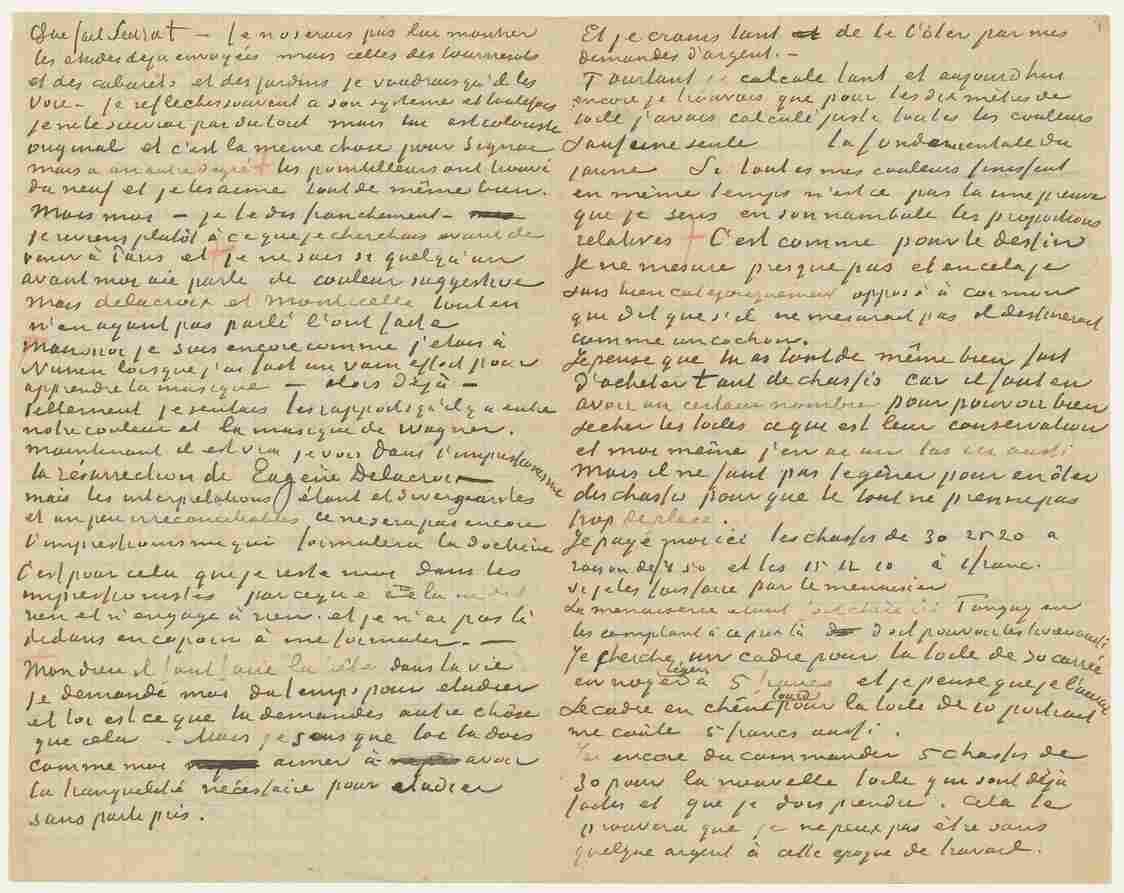 Que fait Seurat – je n'oserais pas lui montrer
les études deja envoyées mais celles des tournesols
et des cabarets et des jardins je voudrais qu'il les
voie – je reflechis souvent a son systeme et toutefois
je ne le suivrai pas du tout mais lui est coloriste
original et c'est la meme chose pour Signac
mais a un autre degré les pointilleurs ont trouvé
du neuf et je les aime tout de même bien.
Mais moi – je le dis franchement –
je reviens plutôt à ce que je cherchais avant de
venir à Paris et je ne sais si quelqu'un
avant moi aie parlé de couleur suggestive
Mais Delacroix et Monticelli tout en
n'en ayant pas parlé l'ont faite
Mais moi je suis encore comme j'étais à
Nunen lorsque j'ai fait un vain effort pour
apprendre la musique – alors déjà –
tellement je sentais les rapports qu'il y a entre
notre couleur et la musique de Wagner.
maintenant il est vrai je vois dans l'impressionisme
la résurrection de Eugène Delacroix –
mais les interpretations étant et divergeantes
et un peu irreconciliables ce ne sera pas encore
l'impressionisme qui formulera la doctrine
C'est pour cela que je reste moi dans les
impressionistes parceque cela ne dit
rien et n'engage à rien. et je n'ai pas là
dedans en copain à me formuler –
Mon dieu il faut faire la bête dans la vie
je demande moi du temps pour etudier
et toi est ce que tu demandes autre chose
que cela. Mais je sens que toi tu dois
comme moi aimer à avoir
la tranquilité nécessaire pour etudier
sans parti pris.
Et je crains tant de te l'ôter par mes
demandes d'argent. –
Pourtant je calcule tant et aujourd'hui
encore je trouvais que pour les dix mètres de
toile j'avais calculé juste toutes les couleurs
sauf une seule la fondementale du
jaune Si toutes mes couleurs finissent
en même temps n'est ce pas la une preuve
que je sens en somnambule les proportions
relatives C'est comme pour le dessin
je ne mesure presque pas et en cela je
suis bien categoriquement opposé à Cormon
qui dit que s'il ne mesurait pas il dessinerait
comme un cochon.
Je pense que tu as tout de même bien fait
d'acheter tant de chassis car il faut en
avoir un certain nombre pour pouvoir bien
secher les toiles ce qui est leur conservation
et moi même j'en ai un tas ici aussi
Mais il ne faut pas te gêner pour en ôter
des chassis pour que le tout ne prenne pas
trop de place.
Je paye moi ici les chassis de 30 25 20 a
raison de f 1.50 et les 15 12 10 à 1 franc.
si je les fais faire par le menuisier
La menuiserie etant ici Tanguy en
les comptant à ce prix là doit pouvoir les livrer aussi
Je cherche un cadre pour la toile de 30 carrée
en noyer léger à 5 francs et je pense que je l'aurai
Le cadre en chêne lourd pour la toile de 10 portrait
me coûte 5 francs aussi.
J'ai encore du commander 5 chassis de
30 pour la nouvelle toile qui sont déjà
faites et que je dois prendre. Cela te
prouvera que je ne peux pas être sans
quelque argent à cette epoque de travail.